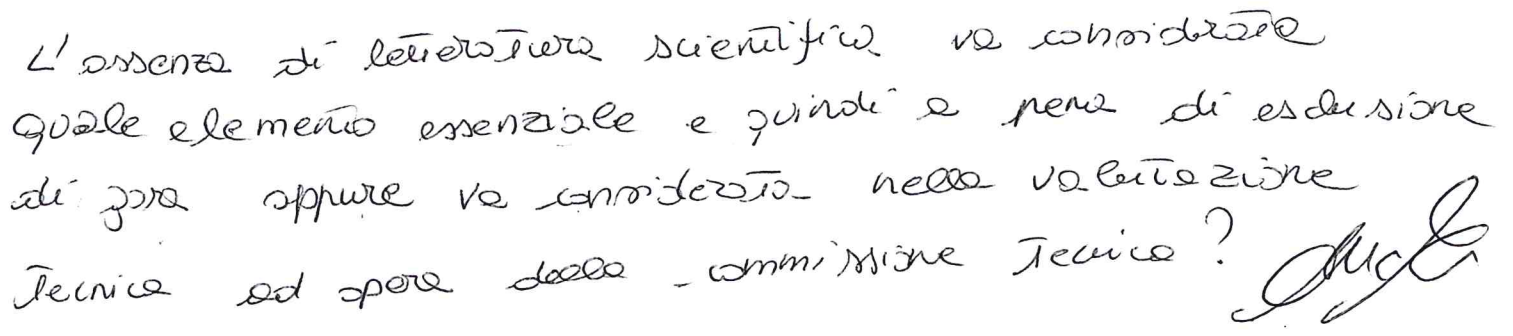 L'assenza di letteratura scientifica va considerata
quale elemento essenziale e quindi a pena di esclusione
di gara oppure va considerata nella valutazione
tecnica ad opera della commissione tecnica?